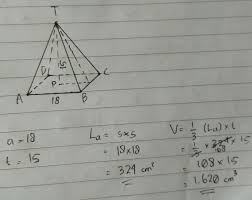 T
D
15
C
P
A
18
B
a = 18
t = 15
La = s x s
= 18 x 18
= 324 cm²
V = 1/3 (La) x t
= 1/3 x 324 x 15
108
= 108 x 15
= 1.620 cm³